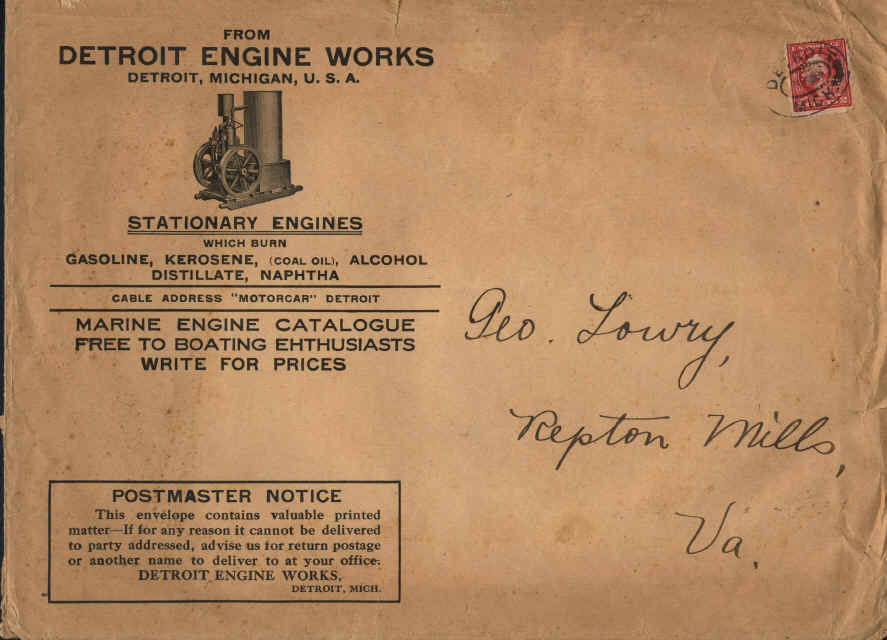 FROM
DETROIT ENGINE WORKS
DETROIT, MICHIGAN, U. S. A.
STATIONARY ENGINES
WHICH BURN
GASOLINE, KEROSENE, (COAL OIL), ALCOHOL
DISTILLATE, NAPHTHA
CABLE ADDRESS "MOTORCAR" DETROIT
MARINE ENGINE CATALOGUE
FREE TO BOATING EHTHUSIASTS
WRITE FOR PRICES
Geo. Lowry,
Repton Mills,
Va.
POSTMASTER NOTICE
This envelope contains valuable printed
matter—If for any reason it cannot be delivered
to party addressed, advise us for return postage
or another name to deliver to at your office.
DETROIT ENGINE WORKS,
DETROIT, MICH.